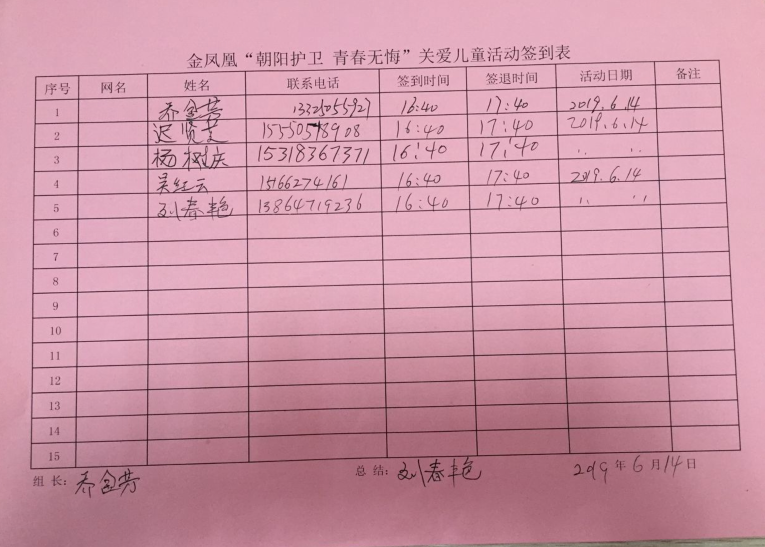 金凤凰“朝阳护卫 青春无悔”关爱儿童活动签到表
序号 网名 姓名 联系电话 签到时间 签退时间 活动日期 备注
1 乔金芳 13325055927 16:40 17:40 2019.6.14
2 迟贤文 15550548908 16:40 17:40 2019.6.14
3 杨树庆 15318367371 16:40 17:40 〃 〃
4 吴红云 15166274161 16:40 17:40 2019.6.14
5 刘春艳 13864719236 16:40 17:40 〃 〃
6
7
8
9
10
11
12
13
14
15
组 长: 乔金芳 总 结: 刘春艳 2019 年 6 月 14 日